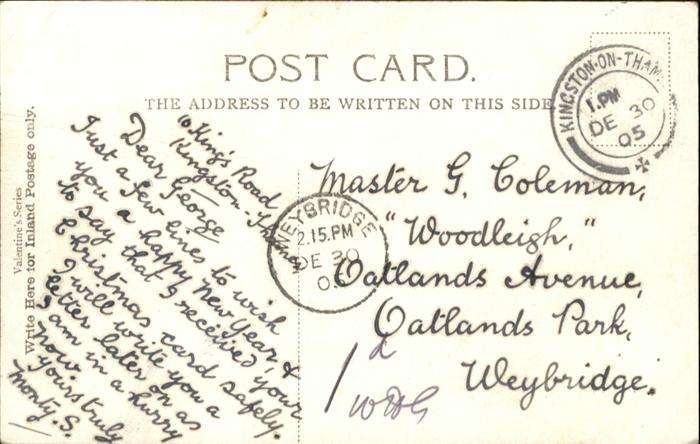 POST CARD.
THE ADDRESS TO BE WRITTEN ON THIS SIDE.
Valentine's Series
Write Here for Inland Postage only.
KINGSTON-ON-THAM
1.PM
DE 30
05
WEYBRIDGE
2.15.PM
DE 30
05
King's Road
Kingston-
Dear George
Just a few lines to wish
you a happy New Year, &
to say that I received your
Christmas card safely.
I will write you a
letter later on as
I am in a hurry
now
yours truly
Monty. S.
Master G. Coleman,
"Woodleigh,"
Oatlands Avenue,
Oatlands Park,
Weybridge.
1d